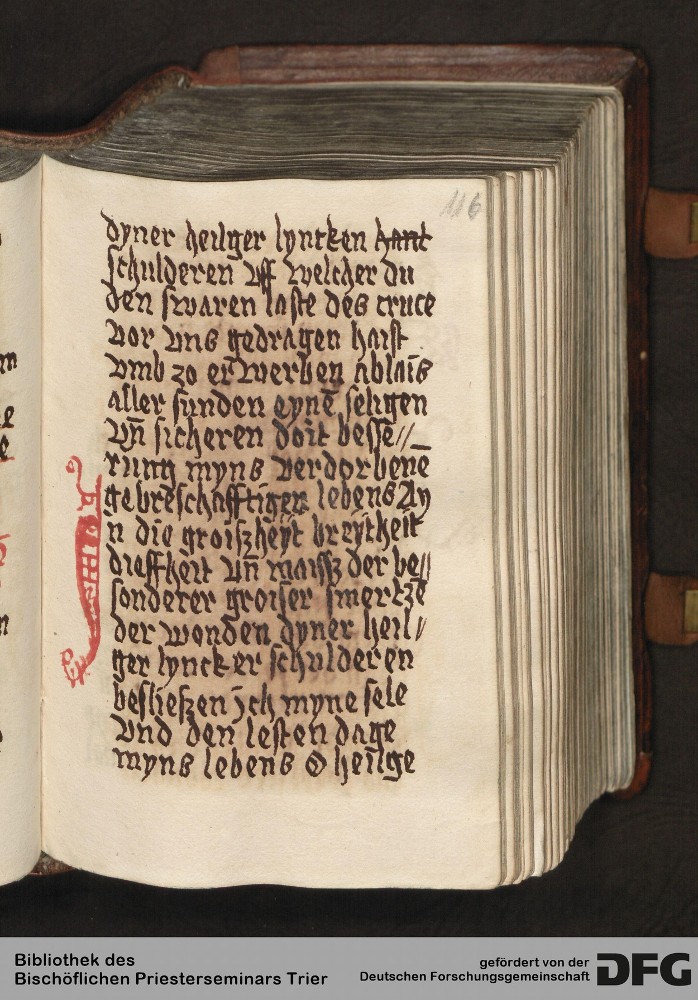 116
dyner heilger lyncken hant
schulderen vff welcher du
den swaren laste des cruce
vor vns gedragen haist
vmb zo erwerben ablais
aller sunden eynē seligen
vn̄ sicheren doit besse//
rung myns verdorbenē
gebreschafftigen lebens Ay
n die groiszheyt breytheit
dieffheit vn̄ maissz der be//
sonderer groiser smertzē
der wonden dyner heil/
ger lyncker schulderen
besließen jch myne sele
vnd den lesten dage
myns lebens O heilge
Bibliothek des
Bischöflichen Priesterseminars Trier
gefördert von der
Deutschen Forschungsgemeinschaft
DFG